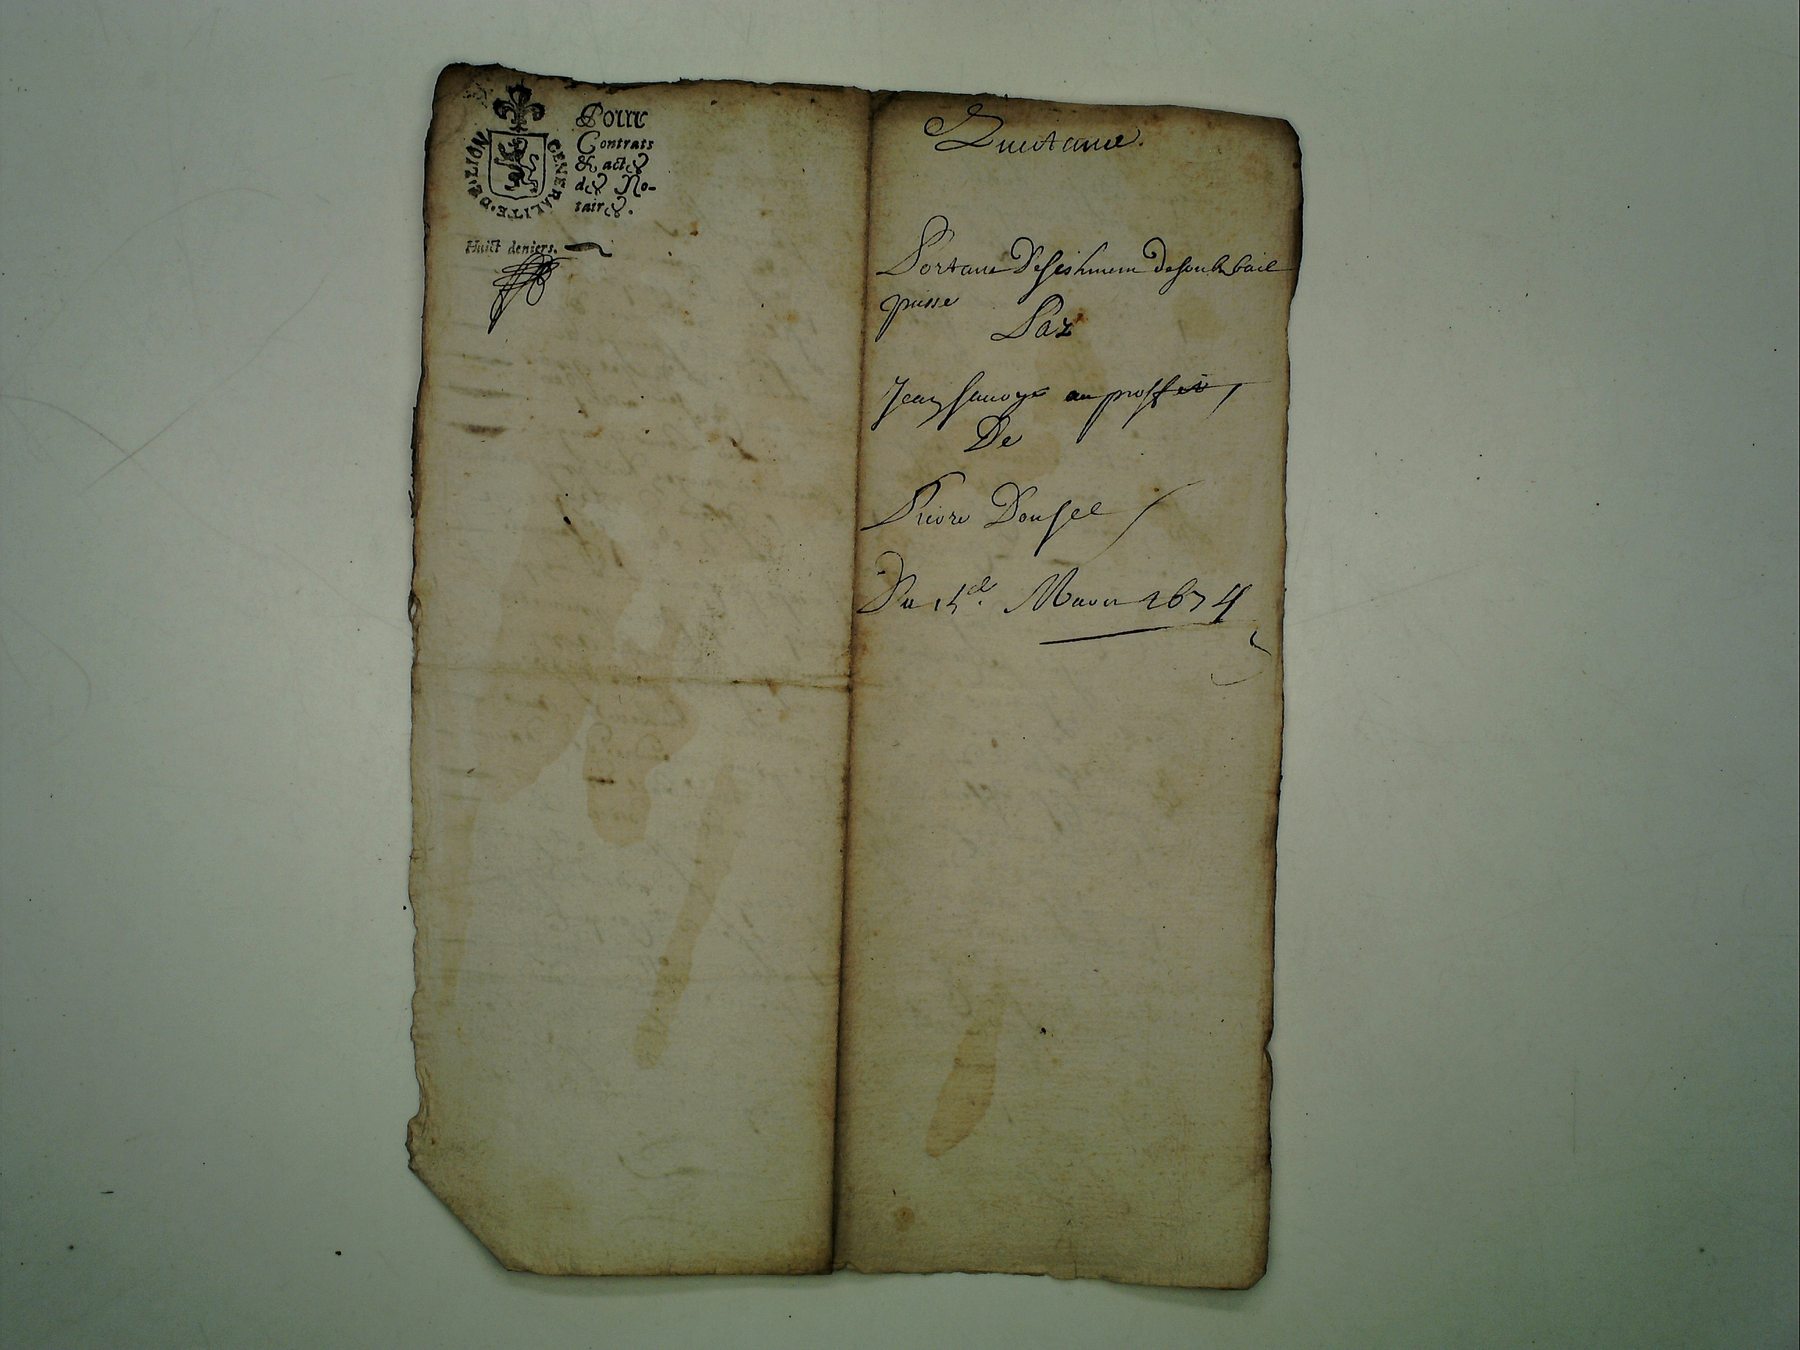 GENERALITE·DE·LION
Pour
Contrats
& actes
des No-
taires.
Huict deniers.
Quictance.
Portant Desistement de soubz bail
passe
Par
Jean Sauoye au proffit
De
Pierre Dousel
Du 15e. Mars 1674